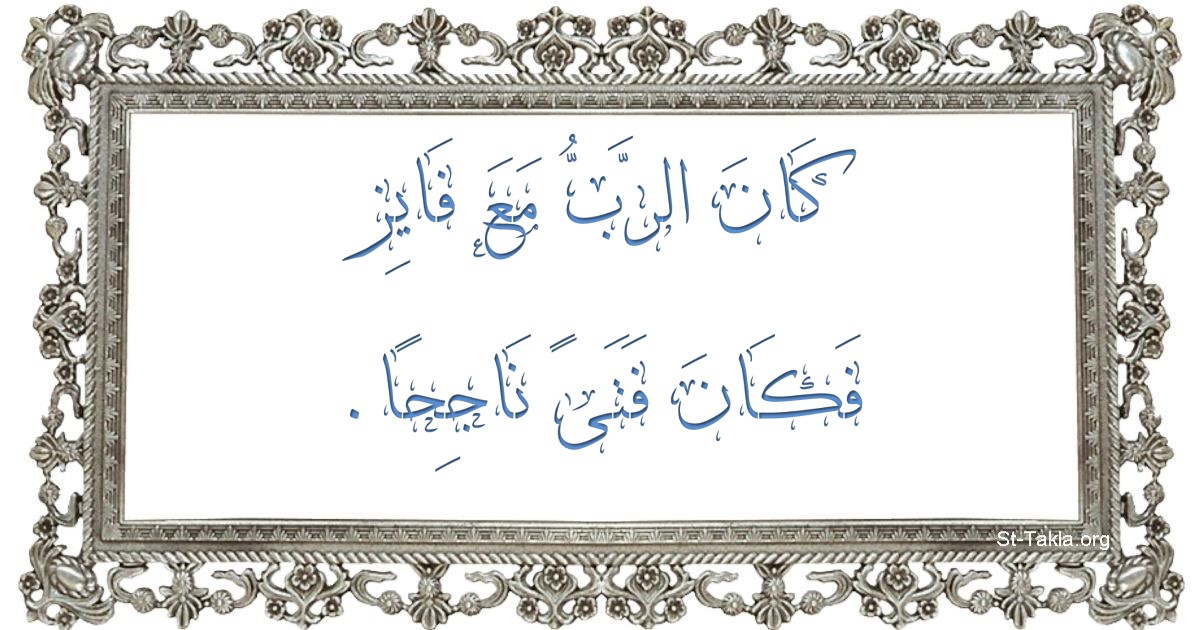 كَانَ الرَّبُّ مَعَ فَايِزِ
فَكَانَ فَتَىً نَاجِحًا .
St-Takla.org